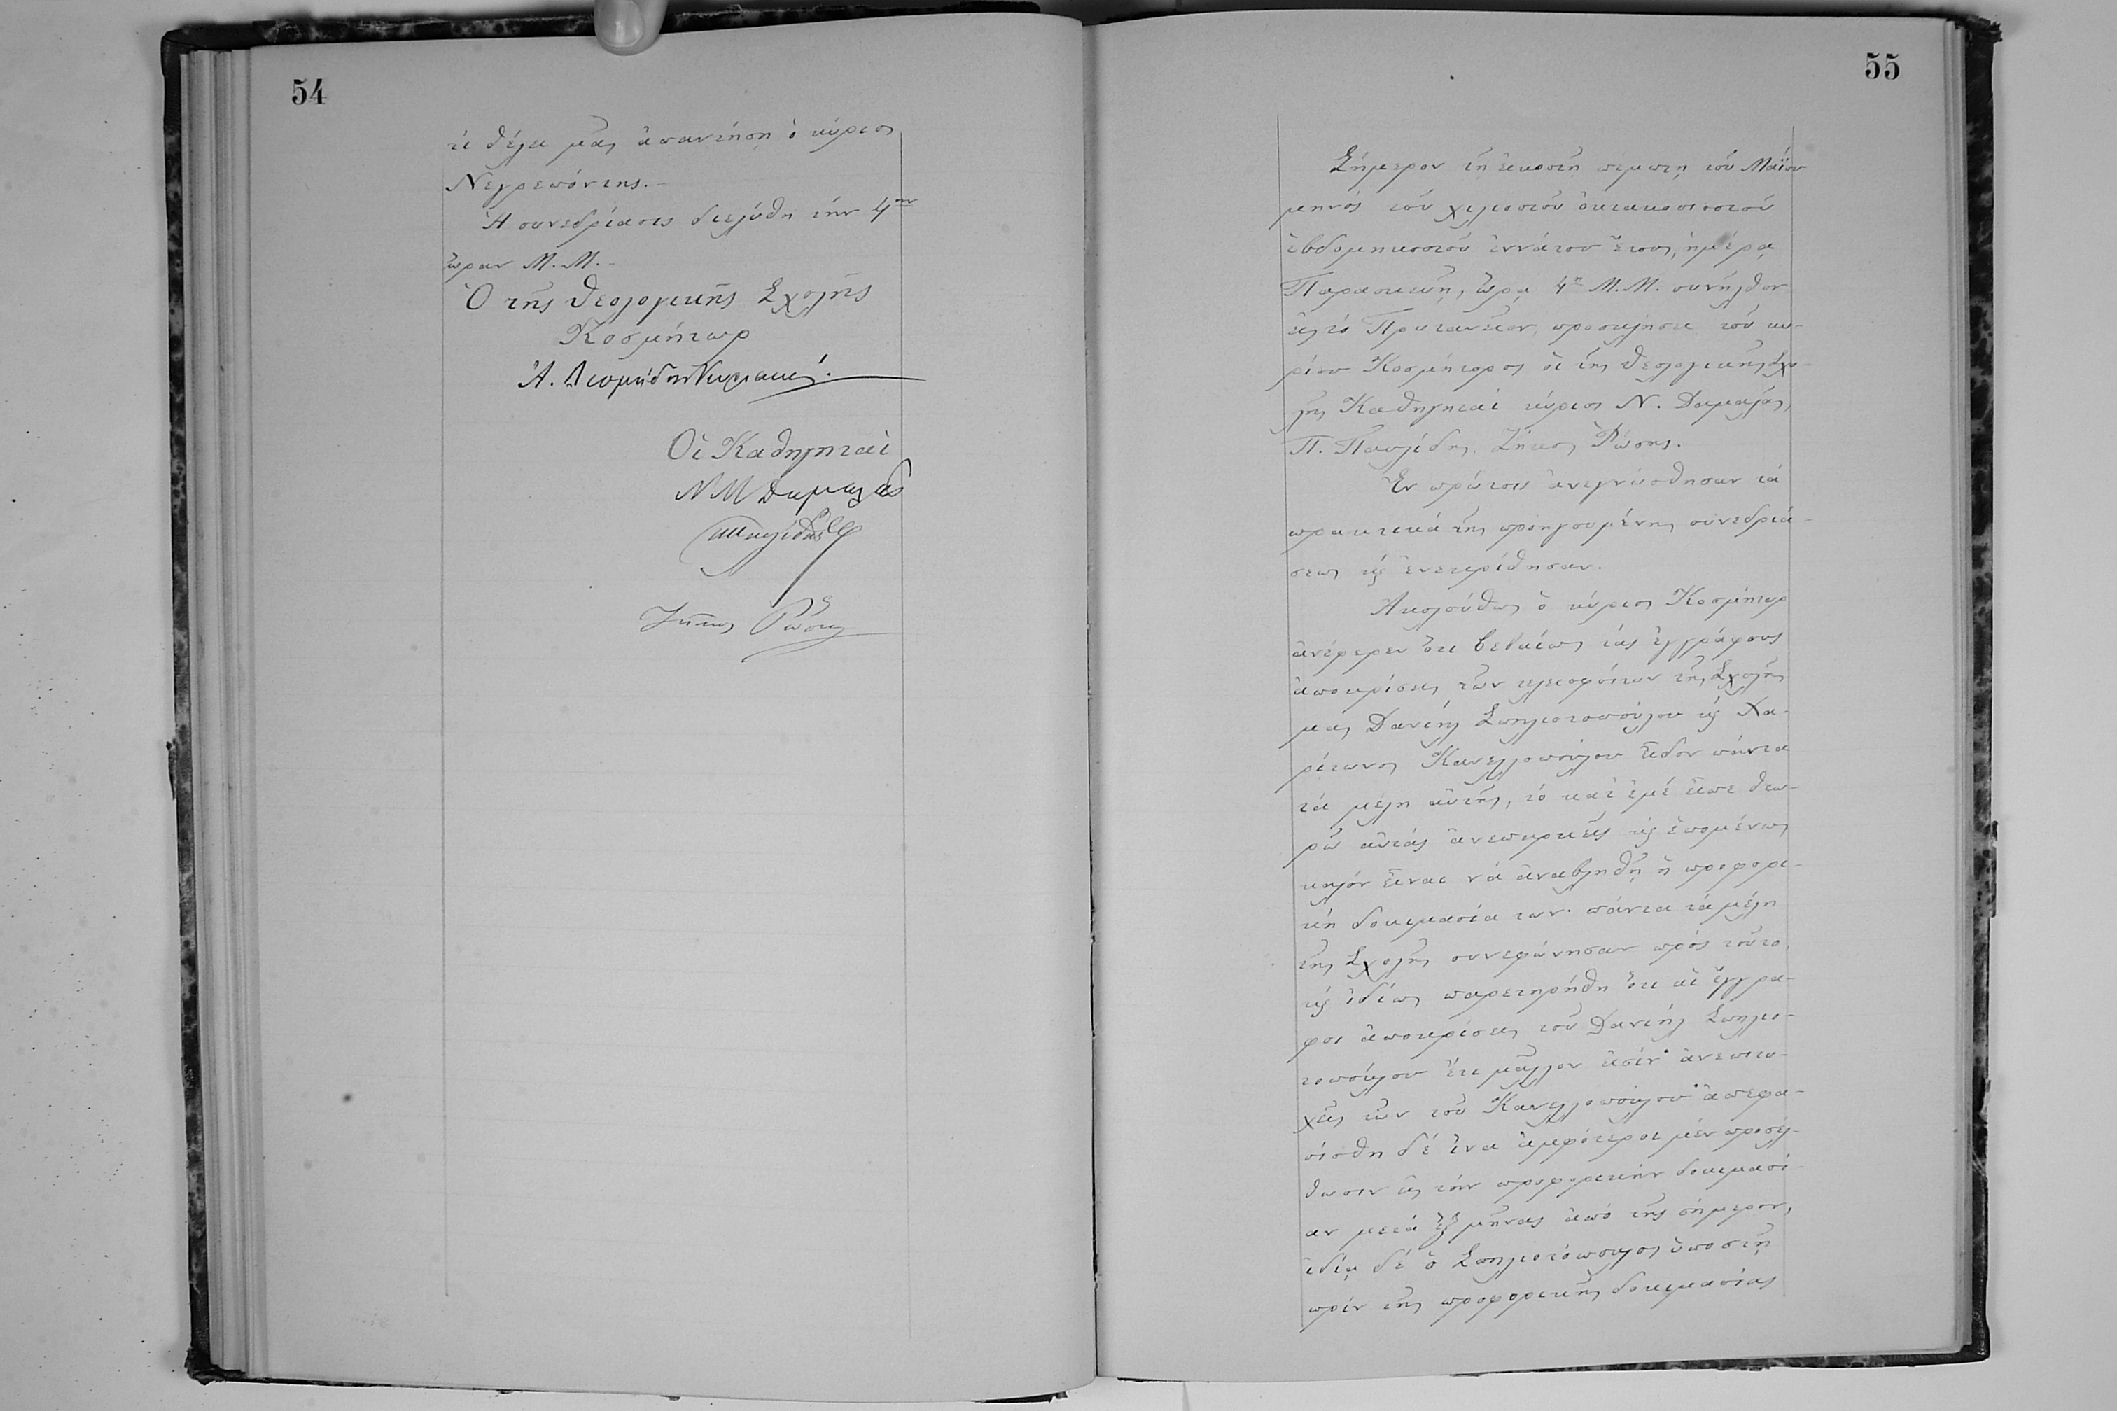 54
τί θέλει μᾶς ἀπαντήσῃ ὁ κύριος
Νεγρεπόντης.–
Ἡ συνεδρίασις διελύθη τὴν 4ην
ὥραν Μ.Μ.–
Ὁ τῆς Θεολογικῆς Σχολῆς
Κοσμήτωρ
Ἀ. Διομήδης Κυριακός.
Οἱ Καθηγηταὶ
Ν Μ Δαμαλᾶς
Παυλίδης
Ζῆκος Ῥώσης
55
Σήμερον τῇ εἰκοστῇ πέμπτῃ τοῦ Μαΐου
μηνός τοῦ χιλιοστοῦ ὀκτακοσιοστοῦ
ἑβδομηκοστοῦ ἐννάτου ἔτους, ἡμέρᾳ
Παρασκευῇ, ὥρᾳ 4ῃ Μ.Μ. συνῆλθον
εἰς τό Πρυτανεῖον, προσκλήσει τοῦ κυ-
ρίου Κοσμήτορος οἱ τῆς Θεολογικῆς Σχο-
λῆς Καθηγηταί κύριοι Ν. Δαμαλᾶς,
Π. Παυλίδης, Ζῆκος Ῥώσης.
Ἐν πρώτοις ἀνεγνώσθησαν τά
πρακτικά τῆς προηγουμένης συνεδριά-
σεως καί ἐνεκρίθησαν.
Ἀκολούθως ὁ κύριος Κοσμήτωρ
ἀνέφερεν ὅτι βεβαίως τάς ἐγγράφους
ἀποκρίσεις τῶν τελειοφοίτων τῆς Σχολῆς
μας Δανιήλ Σπηλιοτοπούλου καί Χα-
ρίτωνος Κανελλοπούλου εἶδον πάντα
τά μέλη αὐτῆς, τό κατ' ἐμέ εἶπε θεω-
ρῶ αὐτάς ἀνεπαρκεῖς καί ἑπομένως
καλόν εἶναι νά ἀναβληθῇ ἡ προφορι-
κή δοκιμασία των· πάντα τά μέλη
τῆς Σχολῆς συνεφώνησαν πρός τοῦτο,
καί ἰδίως παρετηρήθη ὅτι αἱ ἔγγρα-
φοι ἀποκρίσεις τοῦ Δανιήλ Σπηλιο-
τοπούλου ἔτι μᾶλλον εἰσίν ἀνεπιτυ-
χεῖς τῶν τοῦ Κανελλοπούλου· ἀπεφα-
σίσθη δέ ἵνα ἀμφότεροι μέν προσέλ-
θωσιν εἰς τήν προφορικήν δοκιμασί-
αν μετά ἕξ μῆνας ἀπό τῆς σήμερον,
ἰδίᾳ δέ ὁ Σπηλιοτόπουλος ὑποστῇ
πρίν τῆς προφορικῆς δοκιμασίας